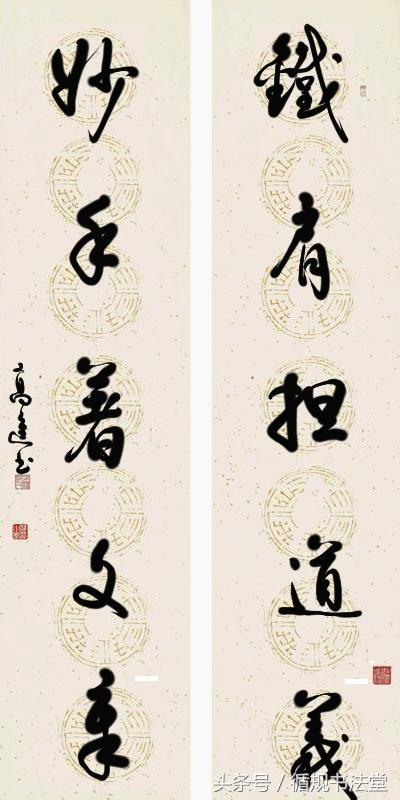 鐵肩担道義
妙手著文章
高逵书
头条号／循规书法堂